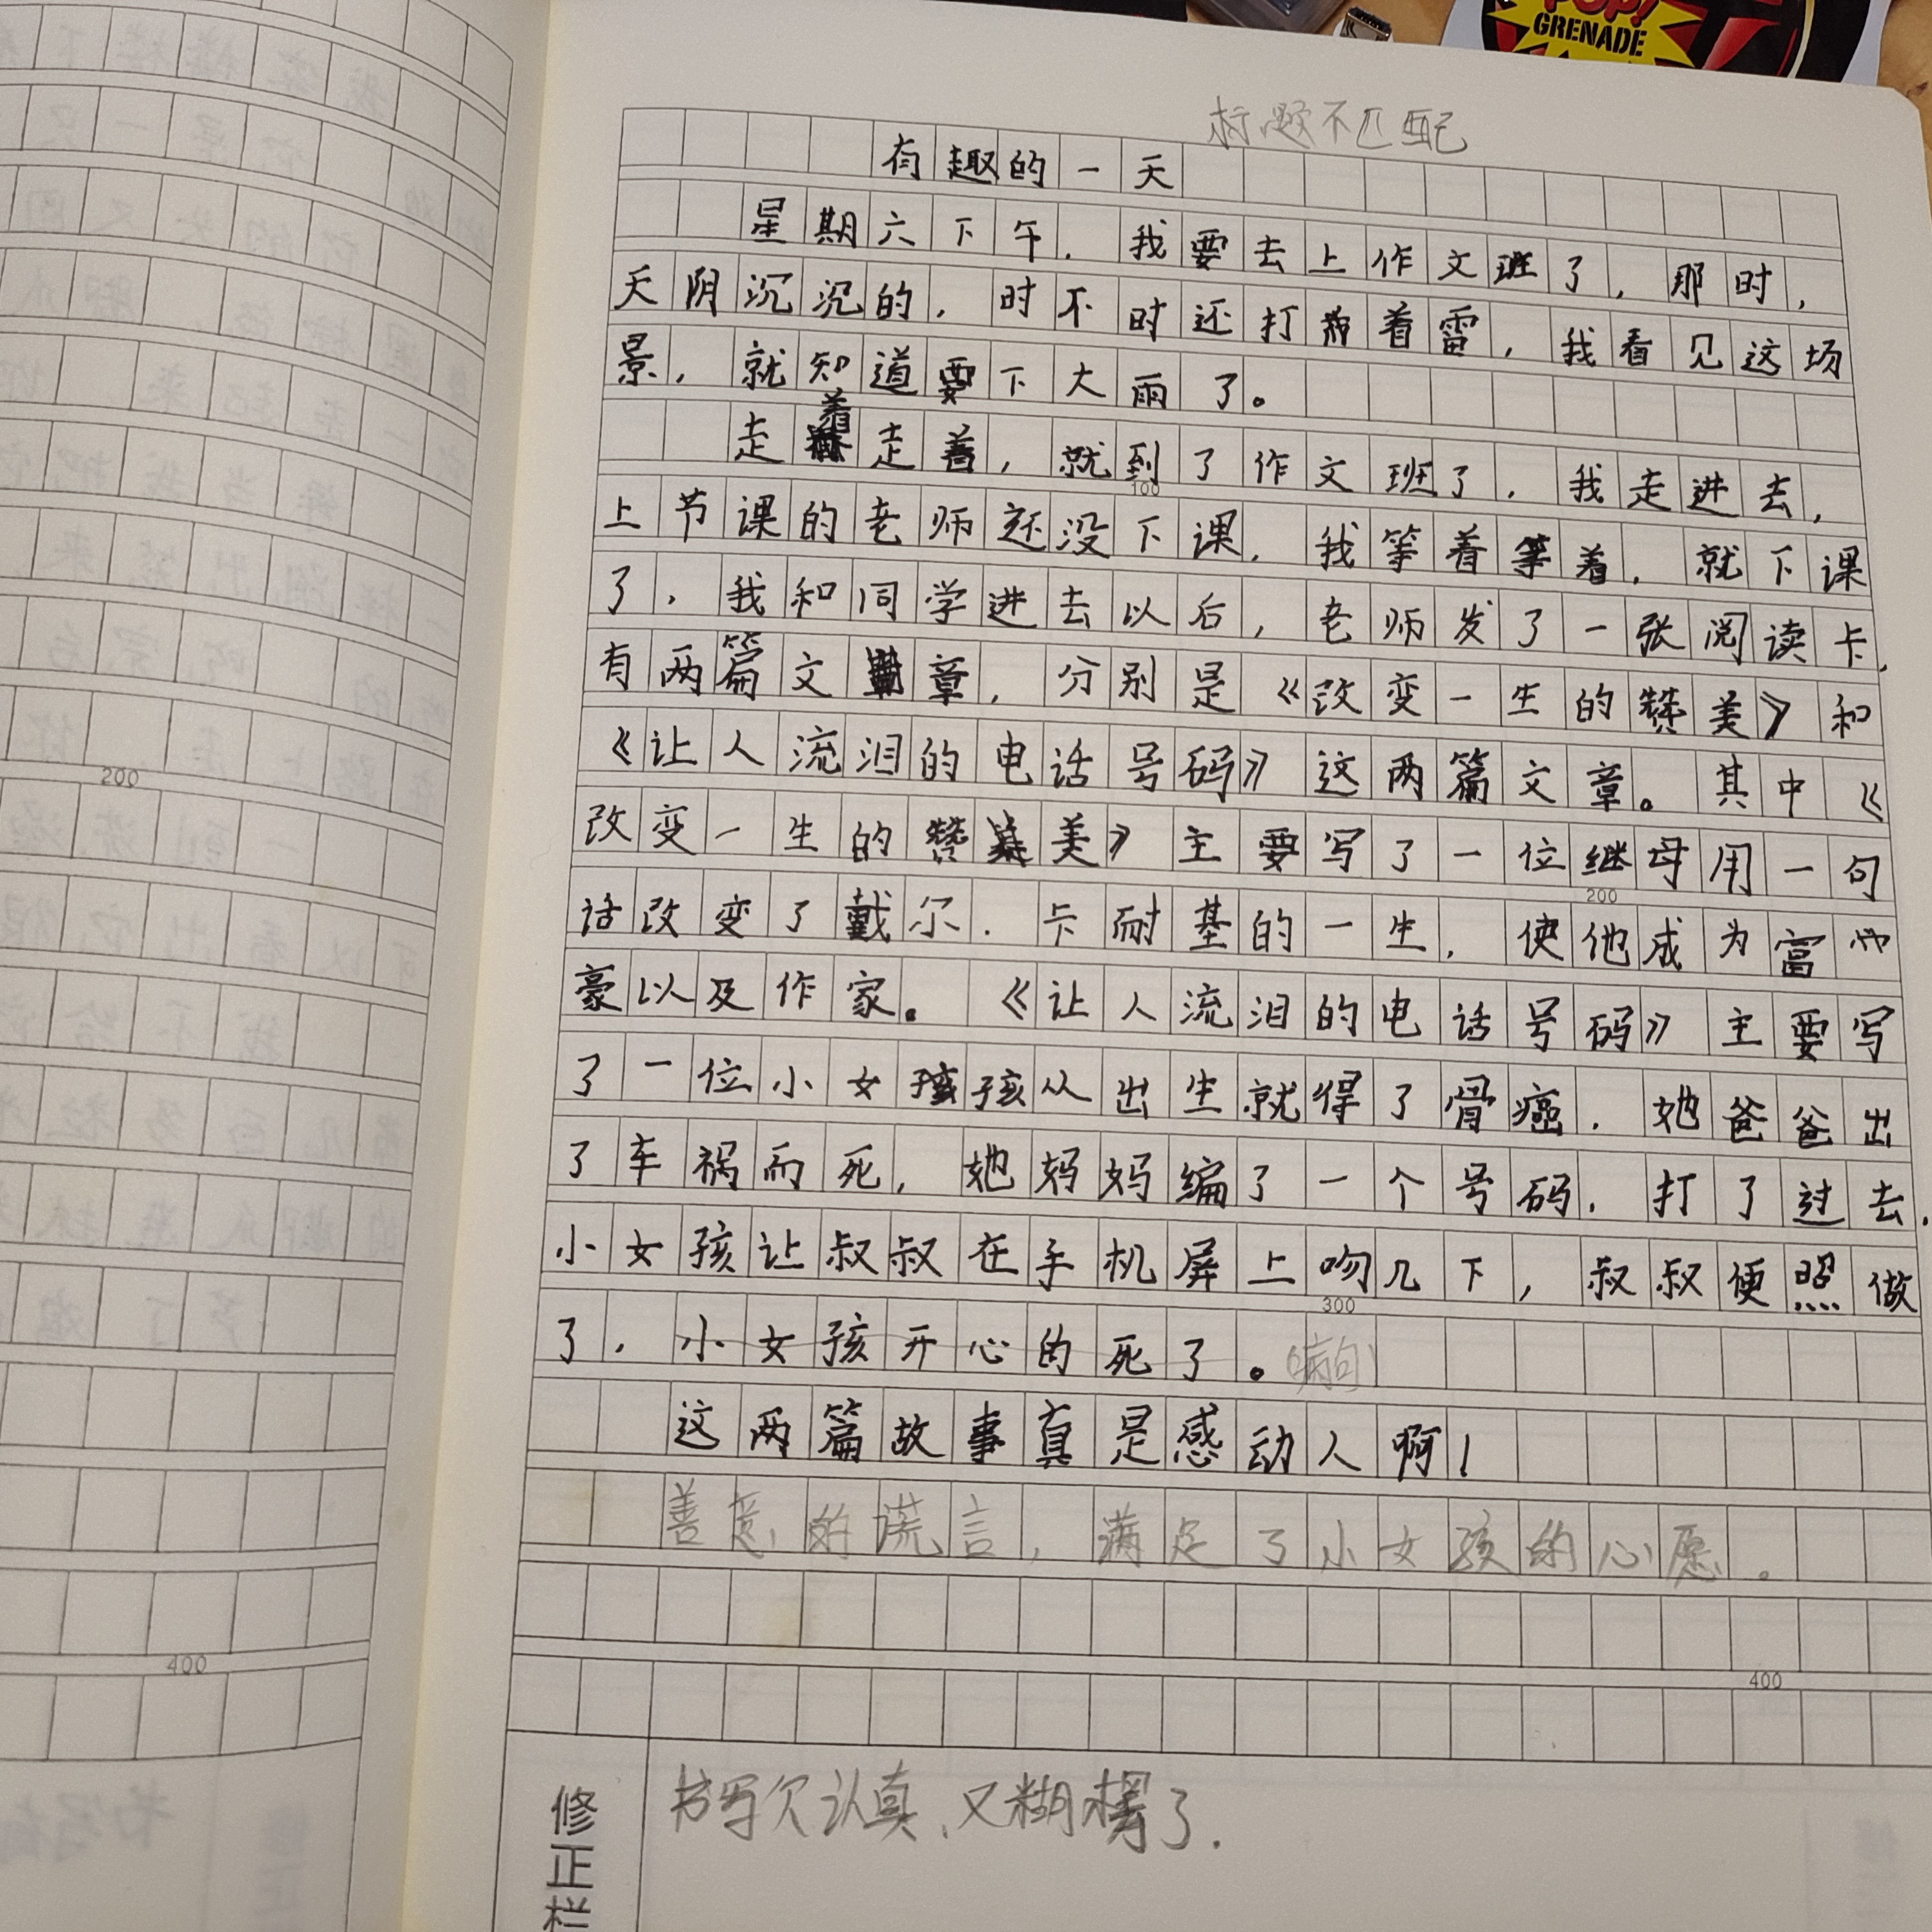 POP!
GRENADE
标题不匹配
有趣的一天
星期六下午，我要去上作文班了，那时，
天阴沉沉的，时不时还打着雷，我看见这场
景，就知道要下大雨了。
走着走着，就到了作文班了，我走进去，
100
上节课的老师还没下课，我等着等着，就下课
了，我和同学进去以后，老师发了一张阅读卡，
有两篇文章，分别是《改变一生的赞美》和
《让人流泪的电话号码》这两篇文章。其中《
改变一生的赞美》主要写了一位继母用一句
200
话改变了戴尔．卡耐基的一生，使他成为富
豪以及作家。《让人流泪的电话号码》主要写
了一位小女孩孩从出生就得了骨癌，她爸爸出
了车祸而死，她妈妈编了一个号码，打了过去，
小女孩让叔叔在手机屏上吻几下，叔叔便照做
300
了，小女孩开心的死了。（病句）
这两篇故事真是感动人啊！
善意的谎言，满足了小女孩的心愿。
400
修正栏
书写欠认真、又糊弄了.
200
400